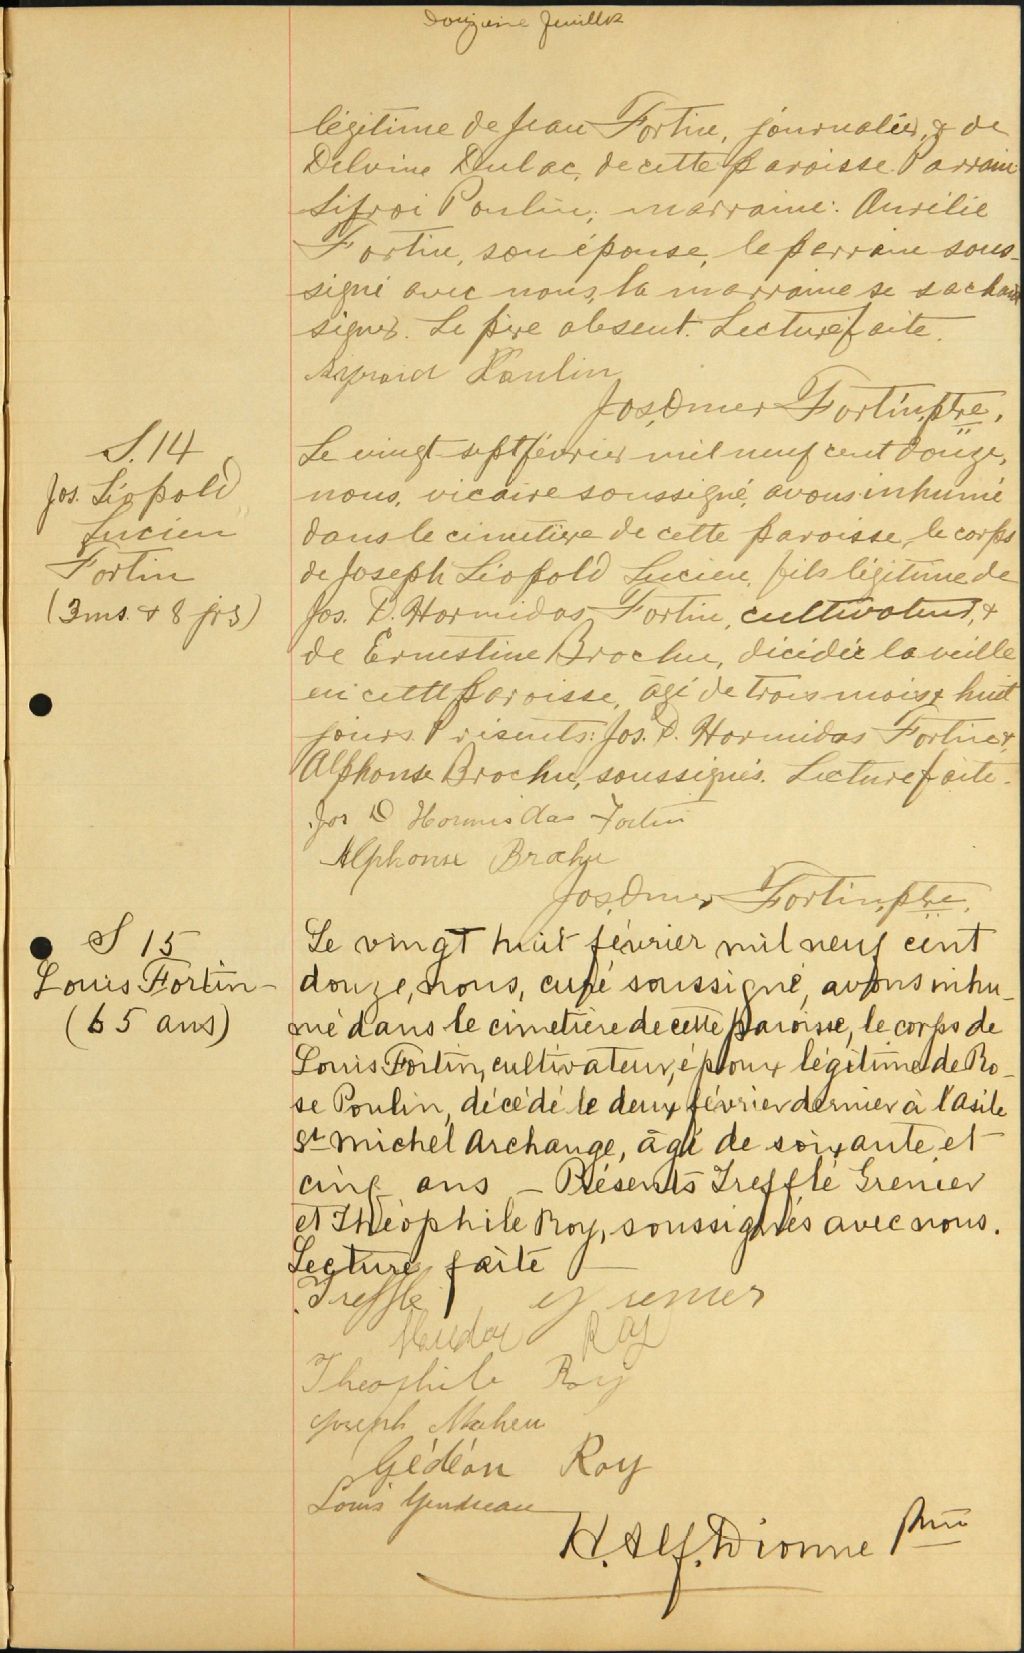 Douzième feuillet
légitime de Jean Fortin, journalier, & de
Delvine Dulac, de cette paroisse. Parrain:
Sifroi Poulin; marraine: Aurélie
Fortin, son épouse, le parrain sous-
signé avec nous, la marraine se sachant
signer. Le père absent. Lecture faite.
Poulin
Jos. Omer Fortin, ptre.
S. 14
Jos. Léopold
Lucien
Fortin
(3 ms. & 8 jrs)
Le vingt-sept février mil neuf cent douze,
nous, vicaire soussigné, avons inhumé
dans le cimetière de cette paroisse, le corps
de Joseph Léopold Lucien, fils légitime de
Jos. D. Hormidas Fortin, cultivateur, &
de Ernestine Brochu, décédé la veille
en cette paroisse, âgé de trois mois & huit
jours. Présents: Jos. D. Hormidas Fortin &
Alphonse Brochu, soussignés. Lecture faite.
Jos D Hormisdas Fortin
Alphonse Brochu
Jos. Omer Fortin, ptre.
S 15
Louis Fortin -
(65 ans)
Le vingt huit février mil neuf cent
douze, nous, curé soussigné, avons inhu-
mé dans le cimetière de cette paroisse, le corps de
Louis Fortin, cultivateur, époux légitime de Ro-
se Poulin, décédé le deux février dernier à l'asile
St Michel Archange, âgé de soixante et
cinq ans - Présents Trefflé Grenier
et Théophile Roy, soussignés avec nous.
Lecture faite
Treffle Grenier
Roy
Theophile Roy
Joseph Maheu
Gédéon Roy
Louis Gendreau
H. Alf. Dionne Ptre